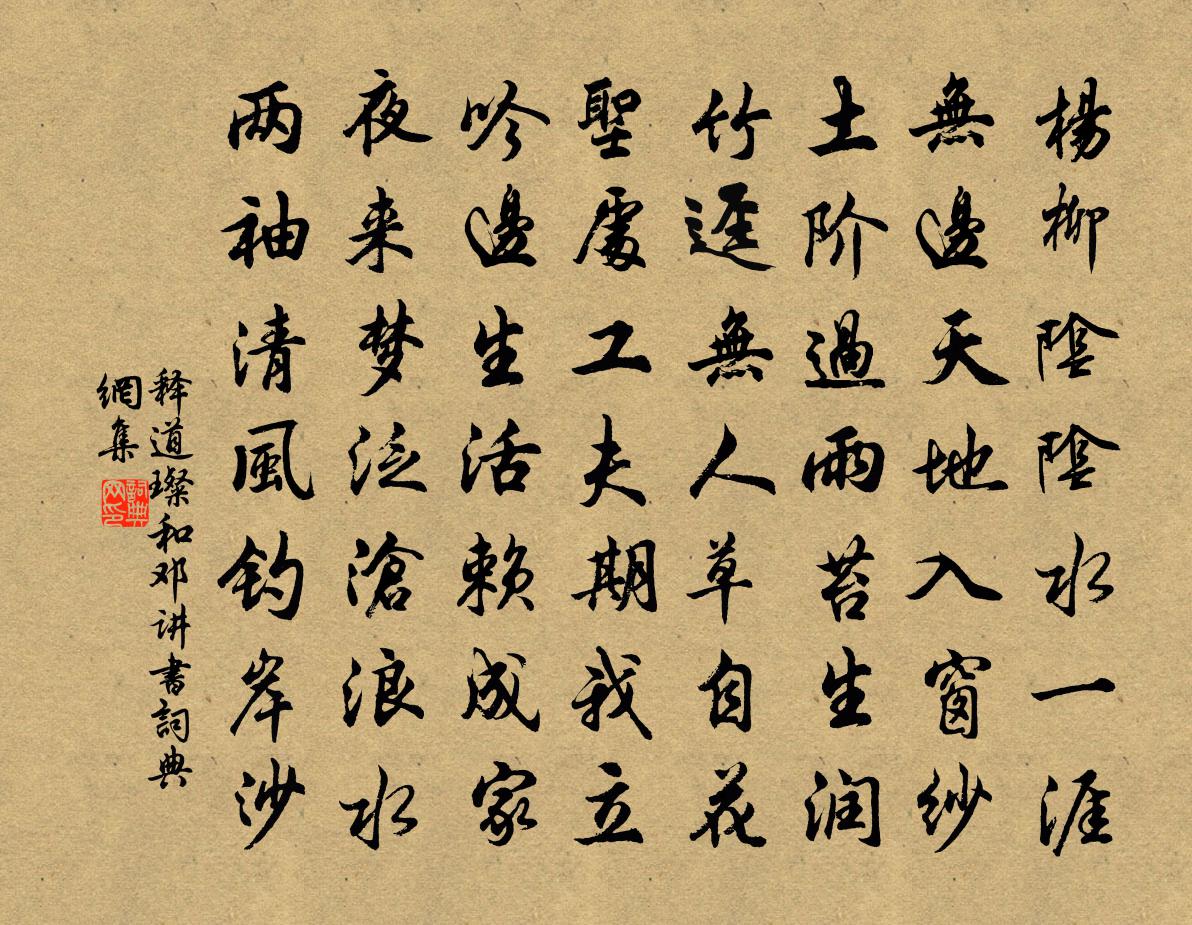 楊柳陰陰水一涯
無邊天地入窗紗
土阶過雨苔生润
竹逕無人草自花
聖處工夫期我立
吟邊生活赖成家
夜来梦泛滄浪水
两袖清風釣岸沙
释道璨和邓讲書詞典
網集
詞典网印